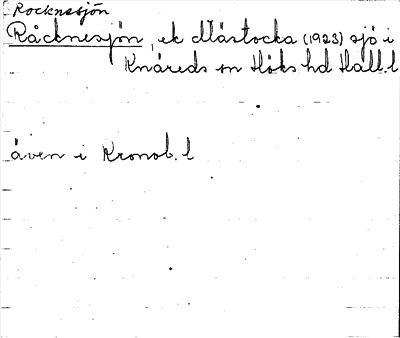 Rocknesjön
Råcknesjön, ek Mästocka (1923) sjö i
Knäreds sn Höks hd Hall. l
även i Kronob. l